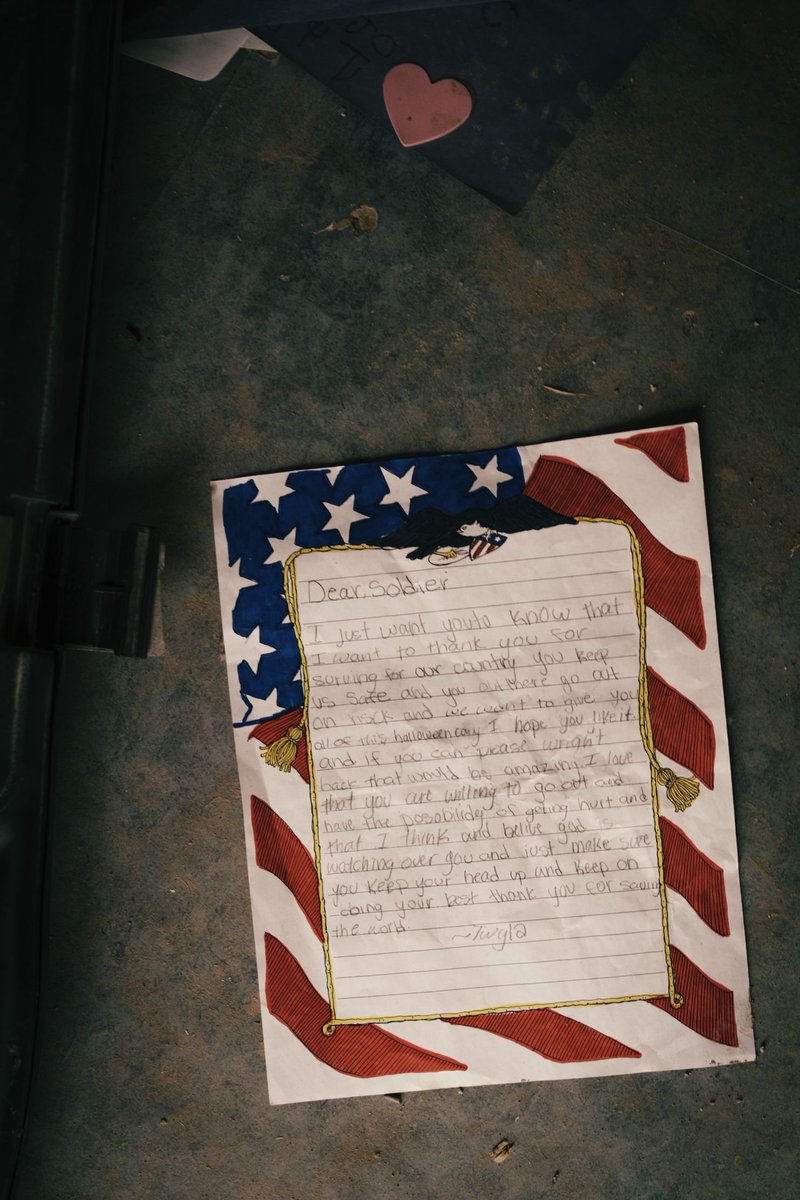 Dear Soldier
I just want you to know that
I want to thank you for
surving for our country you keep
us safe and you out there go out
on risck and we want to give you
all of this halloween cany I hope you like it.
and if you can please wright
back that would be amazing. I love
that you are willing to go out and
have the posobilidey of geting hurt and
that I think and belive god is
watching over you and just make sure
you keep your head up and keep on
doing your best thank you for saving
the world. ~Twyla